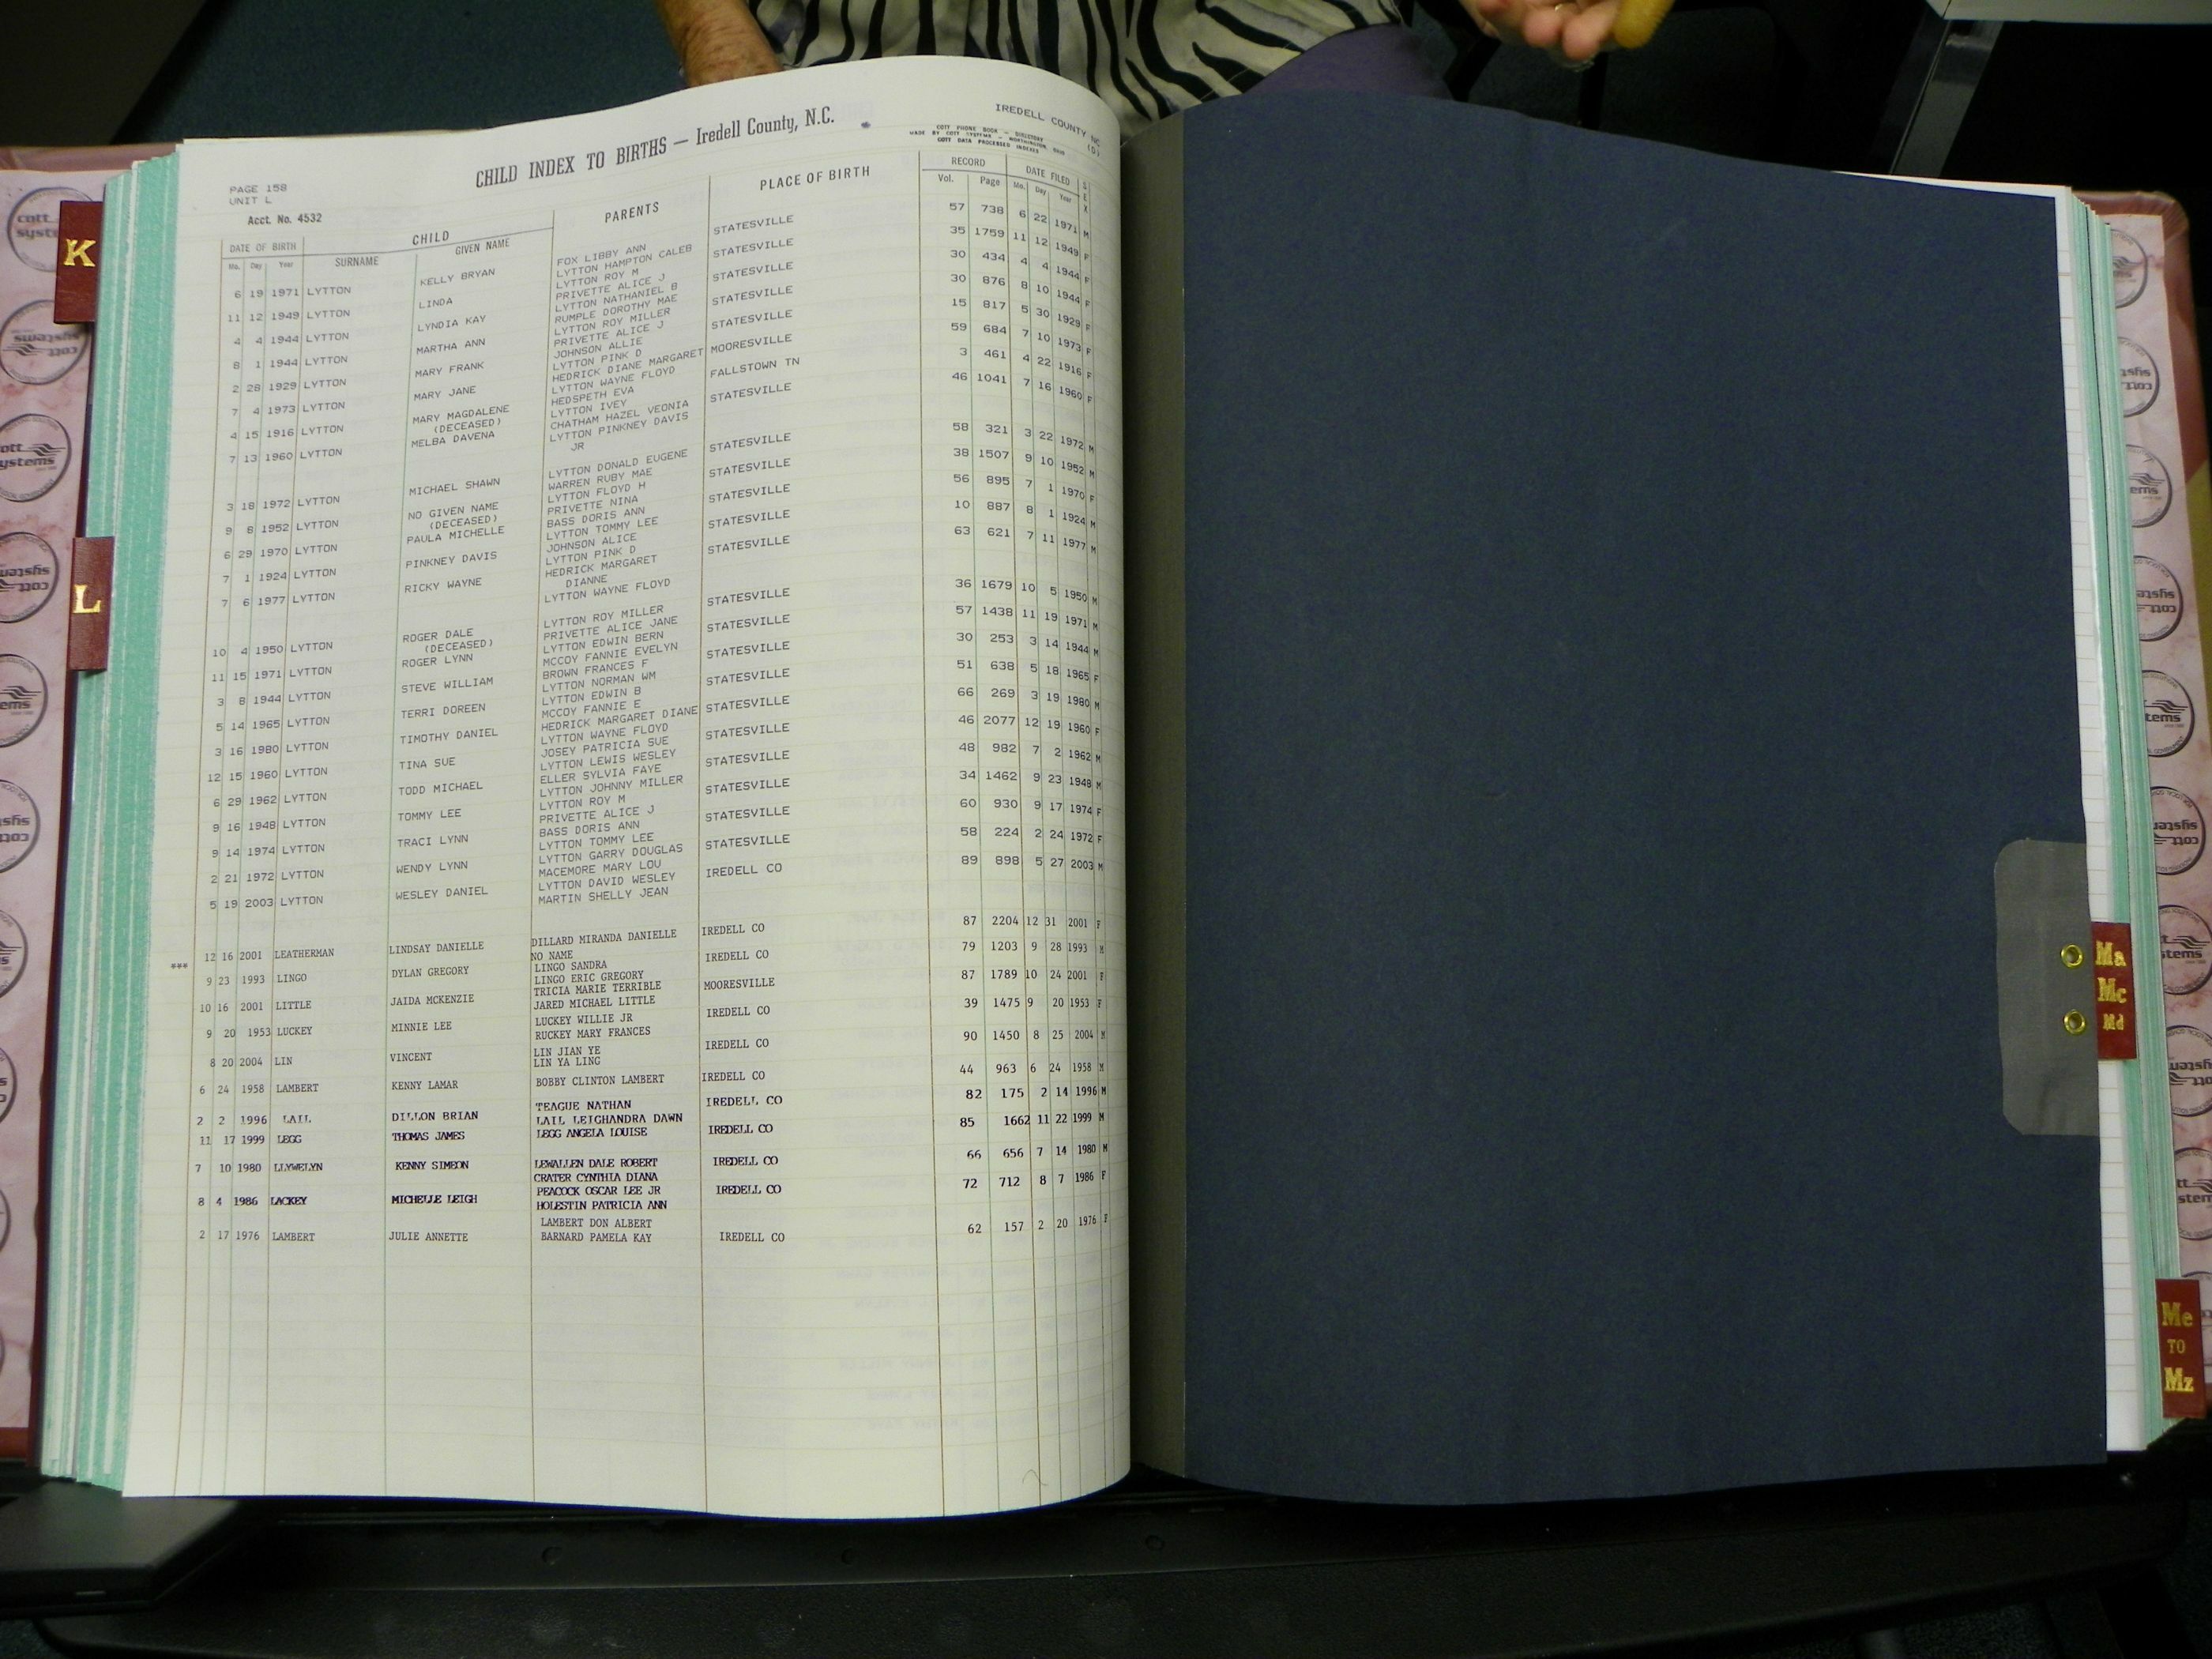 CHILD INDEX TO BIRTHS — Iredell County, N.C.
IREDELL COUNTY NC
(D)
COTT PHONE BOOK - DIRECTORY
MADE BY COTT SYSTEMS - WORTHINGTON, OHIO
COTT DATA PROCESSED INDEXES
PAGE 158
UNIT L
Acct. No. 4532
DATE OF BIRTH CHILD PARENTS PLACE OF BIRTH RECORD DATE FILED SEX
Mo. Day Year SURNAME GIVEN NAME Vol. Page Mo. Day Year
6 19 1971 LYTTON KELLY BRYAN FOX LIBBY ANN STATESVILLE 57 738 6 22 1971 M
LYTTON HAMPTON CALEB
11 12 1949 LYTTON LINDA LYTTON ROY M STATESVILLE 35 1759 11 12 1949 F
PRIVETTE ALICE J
4 4 1944 LYTTON LYNDIA KAY LYTTON NATHANIEL B STATESVILLE 30 434 4 4 1944 F
RUMPLE DOROTHY MAE
8 1 1944 LYTTON MARTHA ANN LYTTON ROY MILLER STATESVILLE 30 876 8 10 1944 F
PRIVETTE ALICE J
2 28 1929 LYTTON MARY FRANK JOHNSON ALLIE STATESVILLE 15 817 5 30 1929 F
LYTTON PINK D
7 4 1973 LYTTON MARY JANE HEDRICK DIANE MARGARET MOORESVILLE 59 684 7 10 1973 F
LYTTON WAYNE FLOYD
4 15 1916 LYTTON MARY MAGDALENE HEDSPETH EVA FALLSTOWN TN 3 461 4 22 1916 F
(DECEASED) LYTTON IVEY
7 13 1960 LYTTON MELBA DAVENA CHATHAM HAZEL VEONIA STATESVILLE 46 1041 7 16 1960 F
LYTTON PINKNEY DAVIS
JR
3 18 1972 LYTTON MICHAEL SHAWN LYTTON DONALD EUGENE STATESVILLE 58 321 3 22 1972 M
WARREN RUBY MAE
9 8 1952 LYTTON NO GIVEN NAME LYTTON FLOYD H STATESVILLE 38 1507 9 10 1952 M
(DECEASED) PRIVETTE NINA
6 29 1970 LYTTON PAULA MICHELLE BASS DORIS ANN STATESVILLE 56 895 7 1 1970 F
LYTTON TOMMY LEE
7 1 1924 LYTTON PINKNEY DAVIS JOHNSON ALICE STATESVILLE 10 887 8 1 1924 M
LYTTON PINK D
7 6 1977 LYTTON RICKY WAYNE HEDRICK MARGARET STATESVILLE 63 621 7 11 1977 M
DIANNE
LYTTON WAYNE FLOYD
10 4 1950 LYTTON ROGER DALE LYTTON ROY MILLER STATESVILLE 36 1679 10 5 1950 M
(DECEASED) PRIVETTE ALICE JANE
11 15 1971 LYTTON ROGER LYNN LYTTON EDWIN BERN STATESVILLE 57 1438 11 19 1971 M
MCCOY FANNIE EVELYN
3 8 1944 LYTTON STEVE WILLIAM BROWN FRANCES F STATESVILLE 30 253 3 14 1944 M
LYTTON NORMAN WM
5 14 1965 LYTTON TERRI DOREEN LYTTON EDWIN B STATESVILLE 51 638 5 18 1965 F
MCCOY FANNIE E
3 16 1980 LYTTON TIMOTHY DANIEL HEDRICK MARGARET DIANE STATESVILLE 66 269 3 19 1980 M
LYTTON WAYNE FLOYD
12 15 1960 LYTTON TINA SUE JOSEY PATRICIA SUE STATESVILLE 46 2077 12 19 1960 F
LYTTON LEWIS WESLEY
6 29 1962 LYTTON TODD MICHAEL ELLER SYLVIA FAYE STATESVILLE 48 982 7 2 1962 M
LYTTON JOHNNY MILLER
9 16 1948 LYTTON TOMMY LEE LYTTON ROY M STATESVILLE 34 1462 9 23 1948 M
PRIVETTE ALICE J
9 14 1974 LYTTON TRACI LYNN BASS DORIS ANN STATESVILLE 60 930 9 17 1974 F
LYTTON TOMMY LEE
2 21 1972 LYTTON WENDY LYNN LYTTON GARRY DOUGLAS STATESVILLE 58 224 2 24 1972 F
MACEMORE MARY LOU
5 19 2003 LYTTON WESLEY DANIEL LYTTON DAVID WESLEY IREDELL CO 89 898 5 27 2003 M
MARTIN SHELLY JEAN
*** 12 16 2001 LEATHERMAN LINDSAY DANIELLE DILLARD MIRANDA DANIELLE IREDELL CO 87 2204 12 31 2001 F
NO NAME
9 23 1993 LINGO DYLAN GREGORY LINGO SANDRA IREDELL CO 79 1203 9 28 1993 M
LINGO ERIC GREGORY
10 16 2001 LITTLE JAIDA MCKENZIE TRICIA MARIE TERRIBLE MOORESVILLE 87 1789 10 24 2001 F
JARED MICHAEL LITTLE
9 20 1953 LUCKEY MINNIE LEE LUCKEY WILLIE JR IREDELL CO 39 1475 9 20 1953 F
RUCKEY MARY FRANCES
8 20 2004 LIN VINCENT LIN JIAN YE IREDELL CO 90 1450 8 25 2004 M
LIN YA LING
6 24 1958 LAMBERT KENNY LAMAR BOBBY CLINTON LAMBERT IREDELL CO 44 963 6 24 1958 M
2 2 1996 LAIL DILLON BRIAN TEAGUE NATHAN IREDELL CO 82 175 2 14 1996 M
LAIL LEIGHANDRA DAWN
11 17 1999 LEGG THOMAS JAMES LEGG ANGELA LOUISE IREDELL CO 85 1662 11 22 1999 M
7 10 1980 LLYWELYN KENNY SIMEON LEWALLEN DALE ROBERT IREDELL CO 66 656 7 14 1980 M
CRATER CYNTHIA DIANA
8 4 1986 LACKEY MICHELLE LEIGH PEACOCK OSCAR LEE JR IREDELL CO 72 712 8 7 1986 F
HOLESTIN PATRICIA ANN
2 17 1976 LAMBERT JULIE ANNETTE LAMBERT DON ALBERT IREDELL CO 62 157 2 20 1976 F
BARNARD PAMELA KAY
K
L
Ma
Mc
Md
Me
TO
Mz
cott
systems